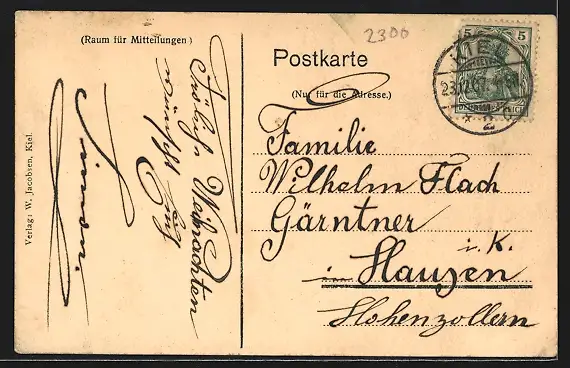 2300
(Raum für Mitteilungen)
Postkarte
(Nur für die Adresse.)
5 5
KIEL
23.12.07
* 2
Fröhliche Weihnachten
wünscht Euch
Simon.
Familie
Wilhelm Flach
Gärntner
i. K.
im Hausen
Hohenzollern
Verlag: W. Jacobsen, Kiel.